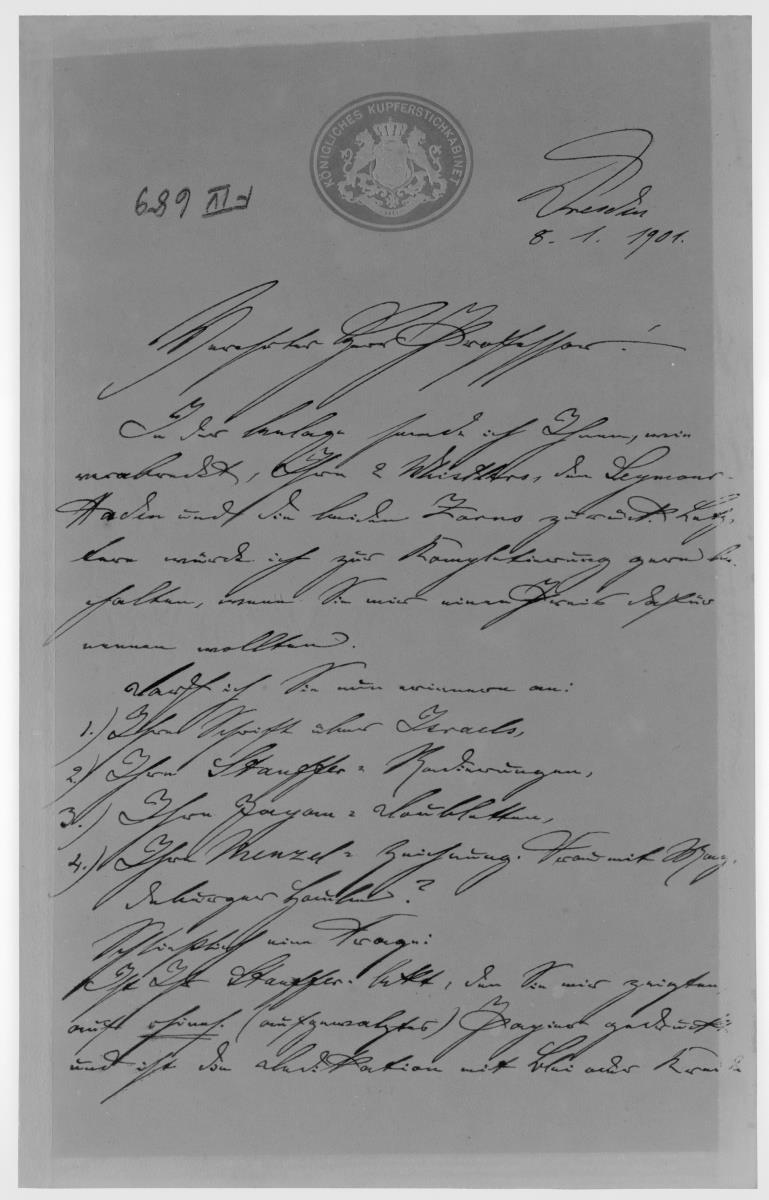 KÖNIGLICHES KUPFERSTICHKABINET
Dresden
8. 1. 1901.
Verehrter Herr Professor!
In der Anlage sende ich Ihnen, wie
verabredet, Ihre 2 Whistlers, den Seymour-
Haden und die beiden Zorns zurück. Letz-
tere würde ich zur Kompletierung gern be-
halten, wenn Sie mir einen Preis dafür
nennen wollten.
Darf ich Sie nun erinnern an:
1.) Ihre Schrift über Israels,
2.) Ihre Stauffer-Radierungen,
3.) Ihre Doubletten,
4.) Ihre Menzel-Zeichnung: Frau mit Mag-
deburger Haube?
Schließlich eine Frage:
Ist Ihr Stauffer-Akt, den Sie mir zeigten,
auf chines. (aufgewalztes) Papier gedruckt
und ist die Dedikation mit Blei oder Kreide